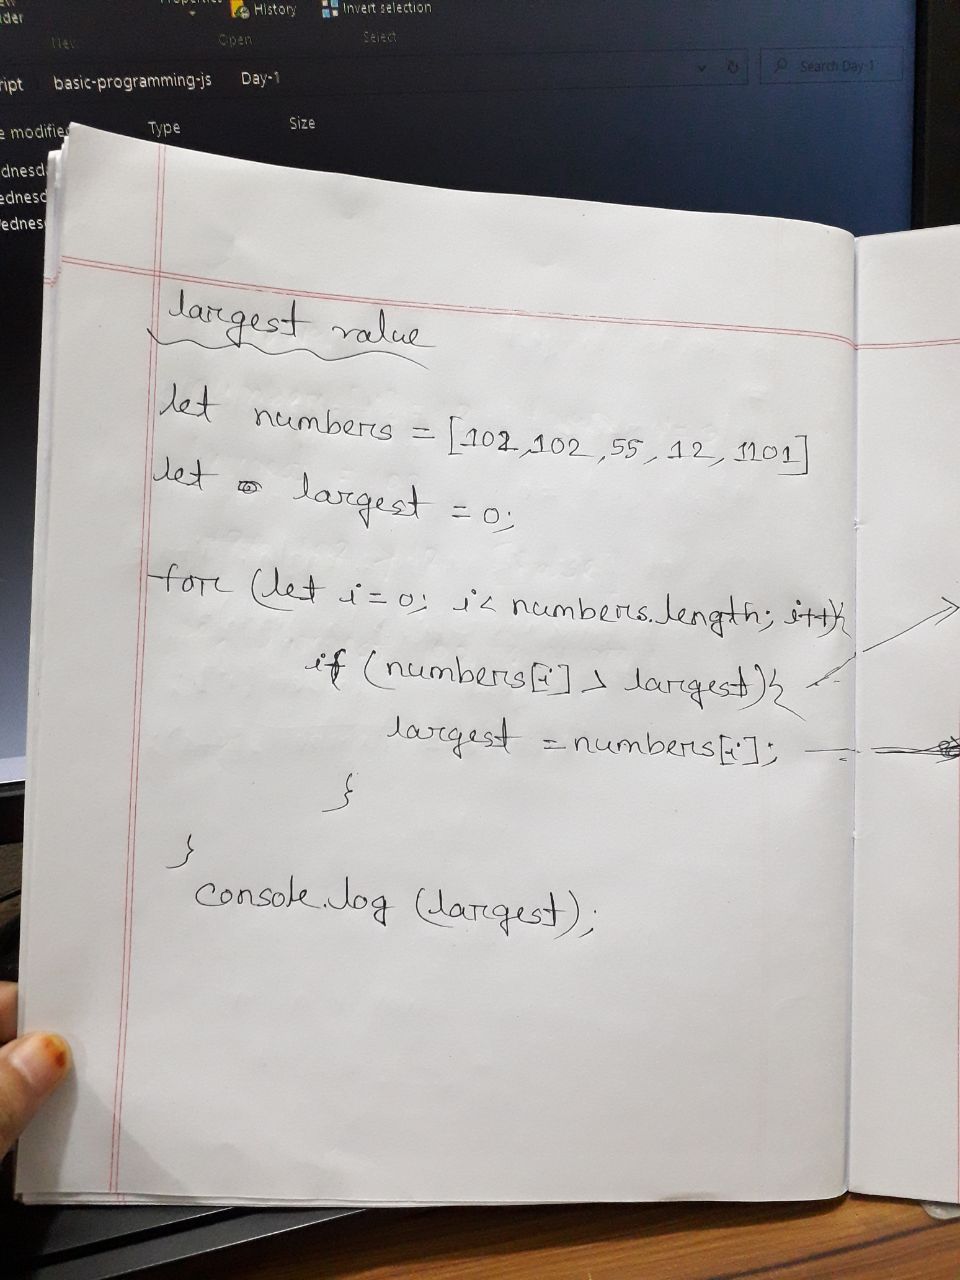 History
Invert selection
New
Open
Select
ript
basic-programming-js
Day-1
Search Day-1
Type
Size
largest value
let numbers = [102,102,55,12,1101]
let largest = 0;
for (let i=0; i< numbers.length; i++){
if (numbers[i] > largest){
largest = numbers[i];
}
}
console.log (largest);